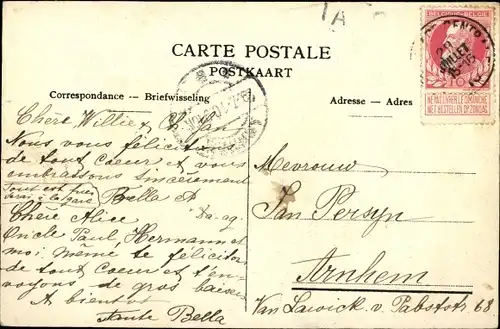 1A
CARTE POSTALE
POSTKAART
Correspondance — Briefwisseling
Adresse — Adres
BELGIQUE·BELGIË
NE PAS LIVRER LE DIMANCHE
NIET BESTELLEN OP ZONDAG
Chère Willie,
Nous vous félicitons
de tout coeur et vous
embrassons sincèrement
Tout est près
à la gare
Bella
Chère Alice
Oncle Paul, Hermann et
moi même te félicitons
de tout coeur et t'en-
voyons de gros baisers
A bientôt
Tante Bella
Mevrouw
Jan Persyn
Arnhem
Van Lawick v. Pabststr 68